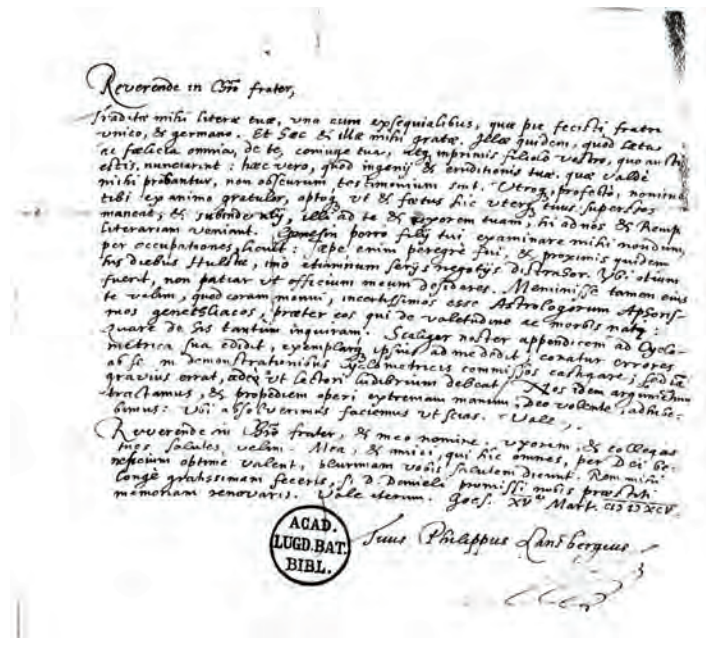 Reverende in Chro frater,
Traditæ mihi literæ tuæ, una cum exsequialibus, quæ pie fecisti, fratri
unico, & germano. Et hæc & illæ mihi gratæ. Illæ quidem, quod læta
ac fælicia omnia, de te, coniuge tua, atq imprimis filiolo vestro, quo aucti
estis, nunciarint: hæc vero, quod ingenij & eruditionis tuæ, quæ valde
mihi probantur, non obscurum testimonium sint. Utroq, profecto, nomine
tibi ex animo gratulor, optoq, ut & fœtus hic uterq tuus superstes
maneat, & subinde alij, illi ad te & uxorem tuam, hi ad nos & Remp
literariam veniant. porro filij tui, examinare mihi nondum,
per occupationes, licuit: sæpe enim peregre fui, & proximis quidem
his diebus Hulstæ, imo etiamnum serijs negotijs distrahor. Ubi otium
fuerit, non patiar ut officium meum desideres. Meminisse tamen eius
te velim, quod coram monui, incertissimos esse Astrologorum Aphoris-
mos genethliacos, præter eos qui de valetudine ac morbis nati:
Quare de his tantum inquiram. Scaliger noster appendicem ad Cyclo-
metrica sua edidit, exemplarq ipsius ad me dedit, conatur errores
ab se in demonstrationibus cyclometricis commissos castigare, sed
gravius errat, adeo ut Lectori ludibrium debeat. Nos idem argumentum
tractamus, & propediem operi extremam manum, deo volente, adhibe-
bimus: Ubi absolverimus faciemus ut scias. Vale,
Reverende in Chro frater, & meo nomine, uxorem, & collegas
tuos salutes, velim. Mea, & amici, qui hic omnes, per Dei be-
neficium optime valent, plurimam vobis salutem dicunt. Rem mihi
longe gratissimam feceris, si D. Danieli promissi nobis præstiti
memoriam renovaris. Vale iterum. Goes. XV Mart. CIƆ IƆ XCV.
Tuus Philippus Lansbergius
ACAD.
LUGD.BAT.
BIBL.